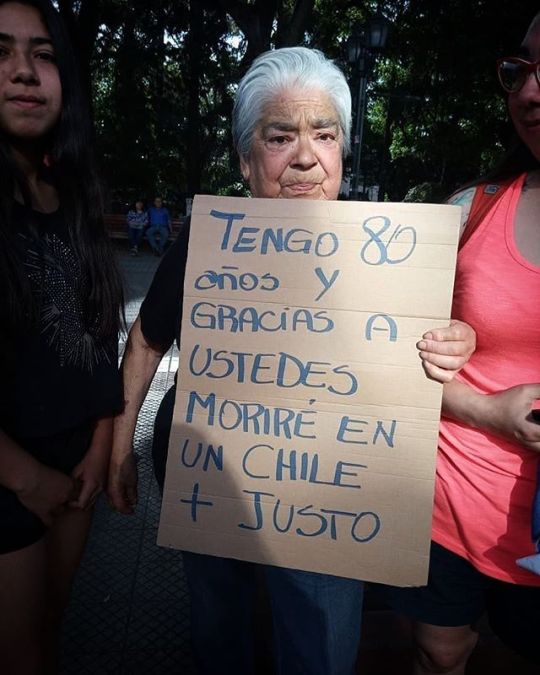 TENGO 80
años y
GRACIAS A
USTEDES
MORIRÉ EN
UN CHILE
+ JUSTO